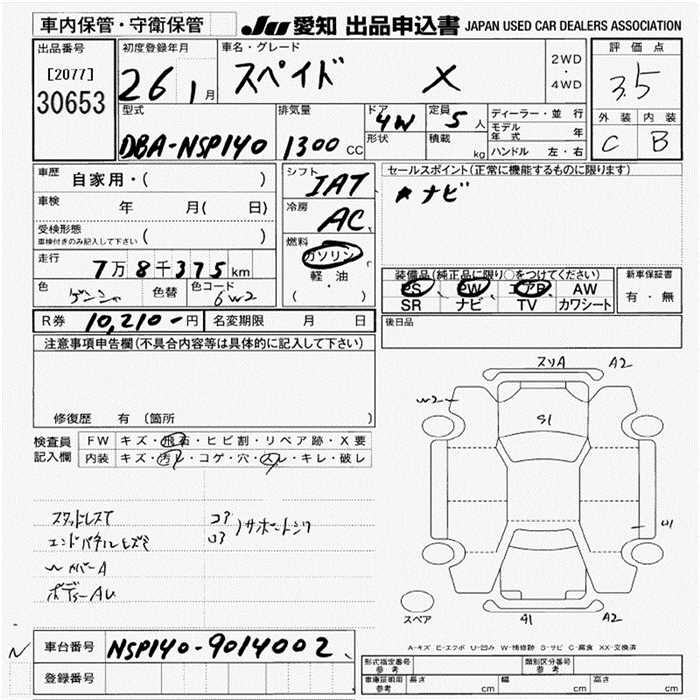 車内保管・守衛保管
JU 愛知 出品申込書 JAPAN USED CAR DEALERS ASSOCIATION
出品番号
[2077]
30653
初度登録年月
26 1月
車名・グレード
スペイド X
2WD
・
4WD
評価点
3.5
外装 内装
C B
型式
DBA-NSP140
排気量
1300 CC
ドア
4W
形状
定員
5人
積載
kg
ディーラー・並行
モデル
年式 年
ハンドル 左・右
車歴
自家用・( )
車検
年 月( 日)
受検形態
車検付きのみ記入して下さい ( )
走行
7万8千375km
色
色替
色コード
6W2
シフト
IAT
冷房
AC
燃料
ガソリン
軽・油
( )
セールスポイント(正常に機能するものに限ります)
ナビ
装備品(純正品に限り○をつけてください)
PS PW エアB AW
SR ナビ TV カワシート
新車保証書
有・無
R券 10,210-円
名変期限 月 日
後日品
注意事項申告欄(不具合内容等は具体的に記入して下さい)
修復歴 有 (箇所 )
検査員
記入欄
FW キズ・飛石・ヒビ割・リペア跡・X要
内装 キズ・汚レ・コゲ・穴・スレ・キレ・破レ
スタッドレスT
ボディーAU
スリA A2
W2
S1
U1
A1 A2
スペア
A-キズ E-エクボ U-凹み W-補修跡 S-サビ C-腐食 XX-交換済
N
車台番号 NSP140-9014002
登録番号
形式指定番号
参考
類別区分番号
参考
車庫証明用
参考
長さ cm
幅 cm
高さ cm